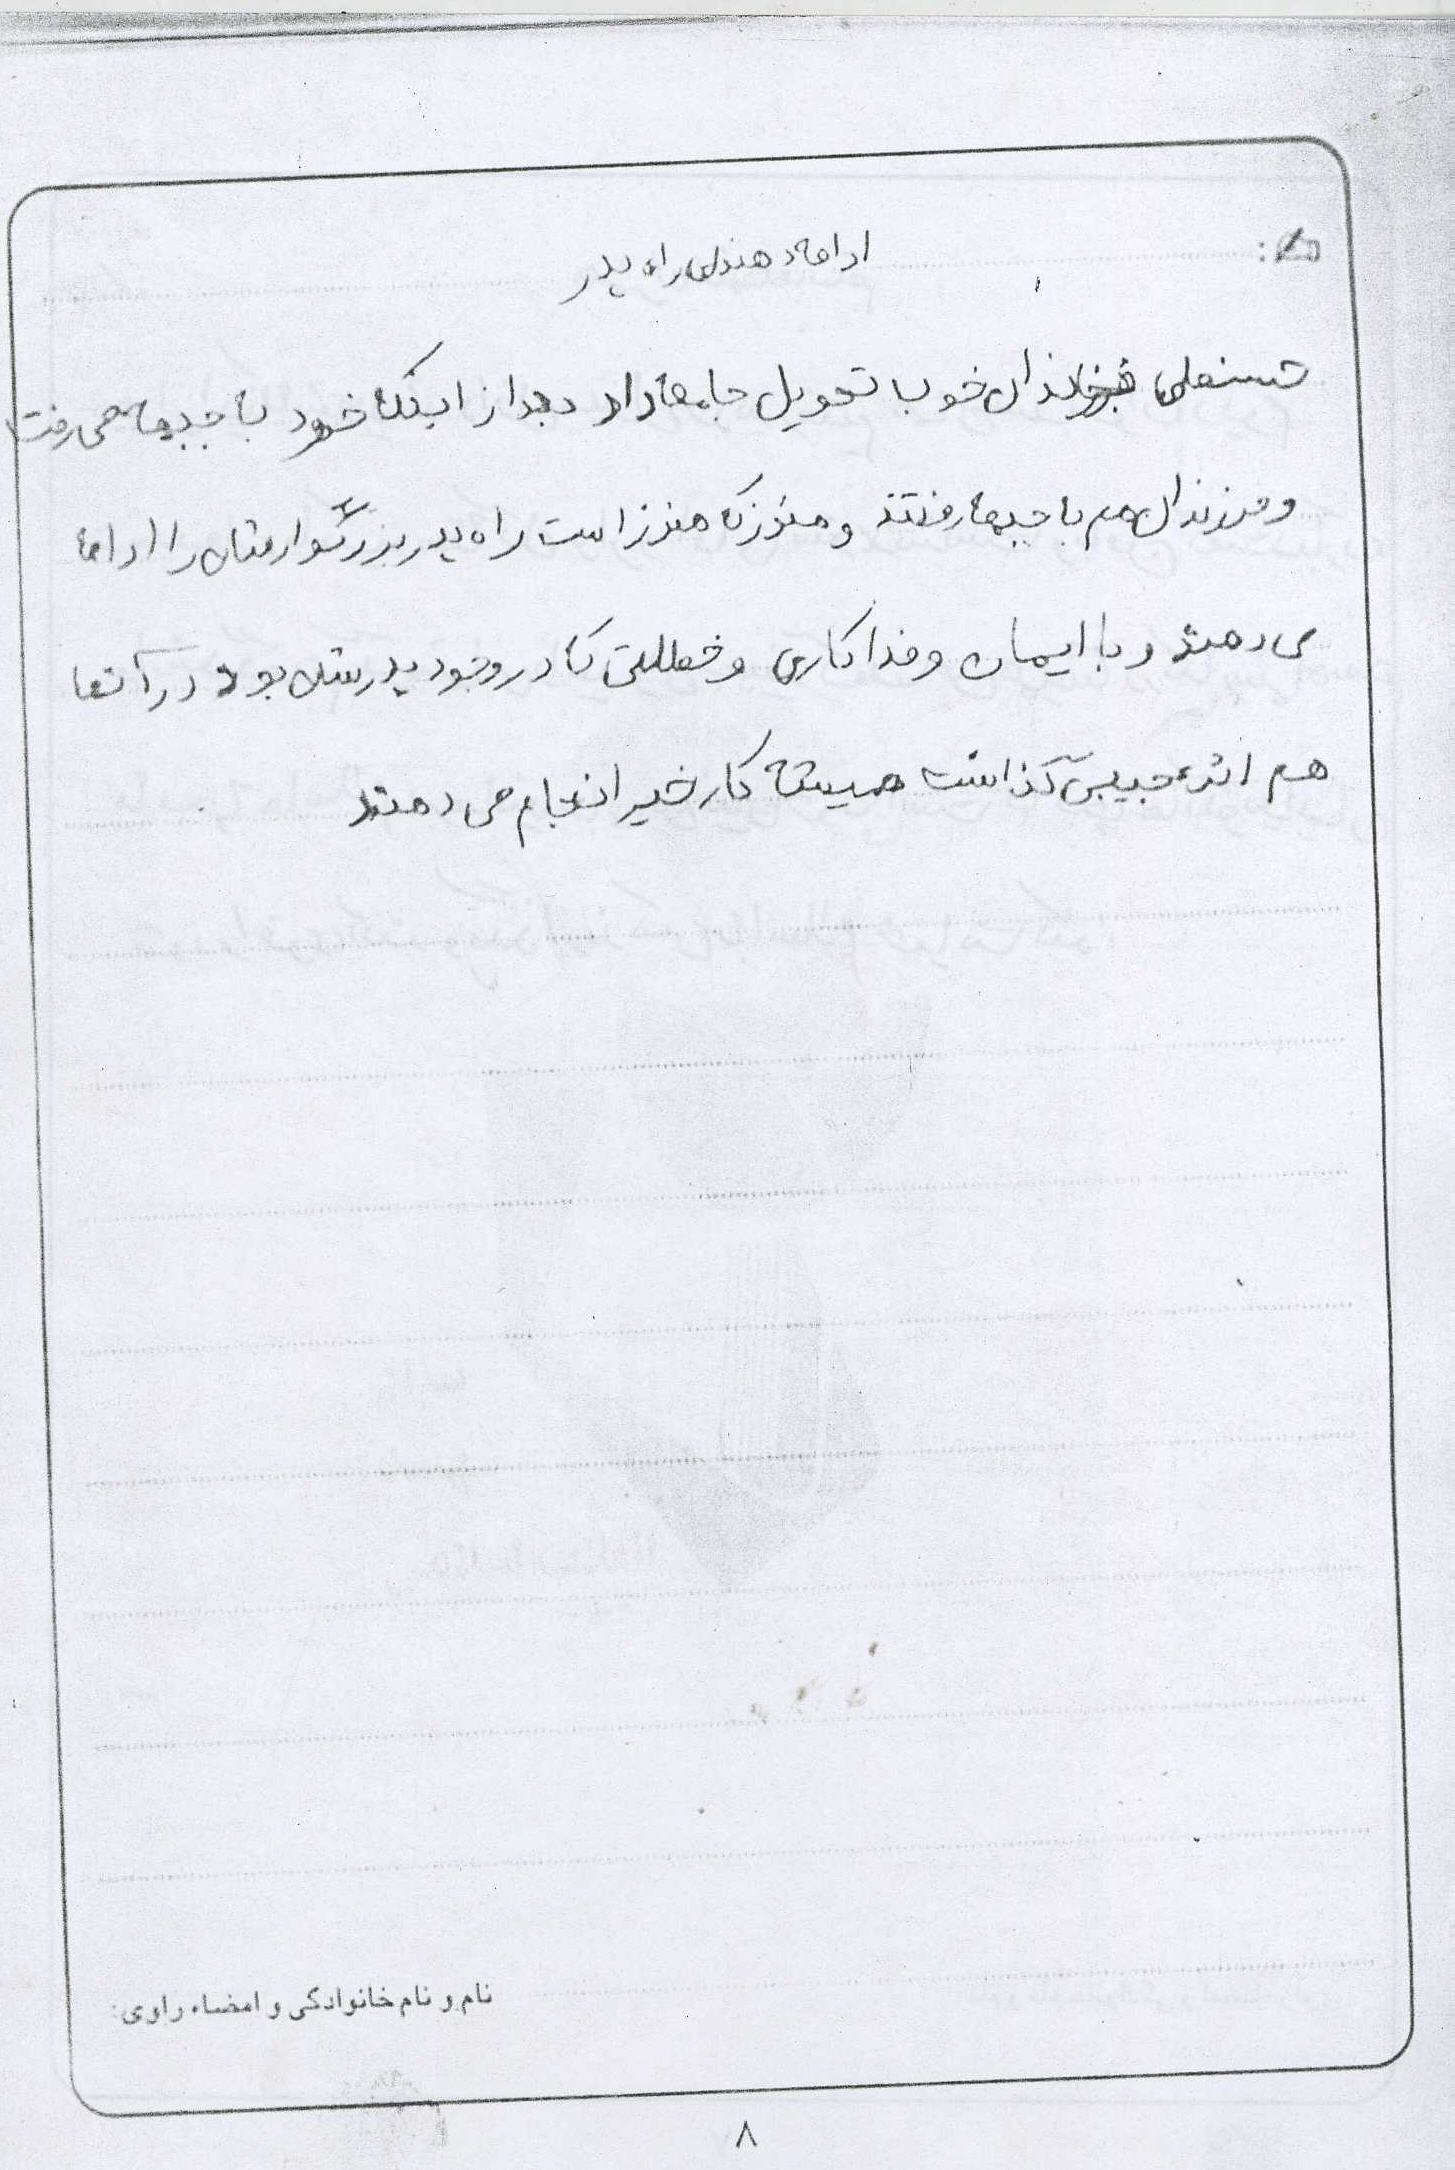 ادامه دهنده راه پدر
حسنعلی فرزندان خوب تحویل جامعه داد بعد از اینکه خود به جبهه می رفت
و فرزندان هم به جبهه رفتند و هنوز که هنوز است راه پدر بزرگوارشان را ادامه
می دهند و با ایمان و فداکاری و خصلتی که در وجود پدرشان بود در آنها
هم اثر عجیبی گذاشت همیشه کار خیر انجام می دهند
نام و نام خانوادگی و امضاء راوی:
۸